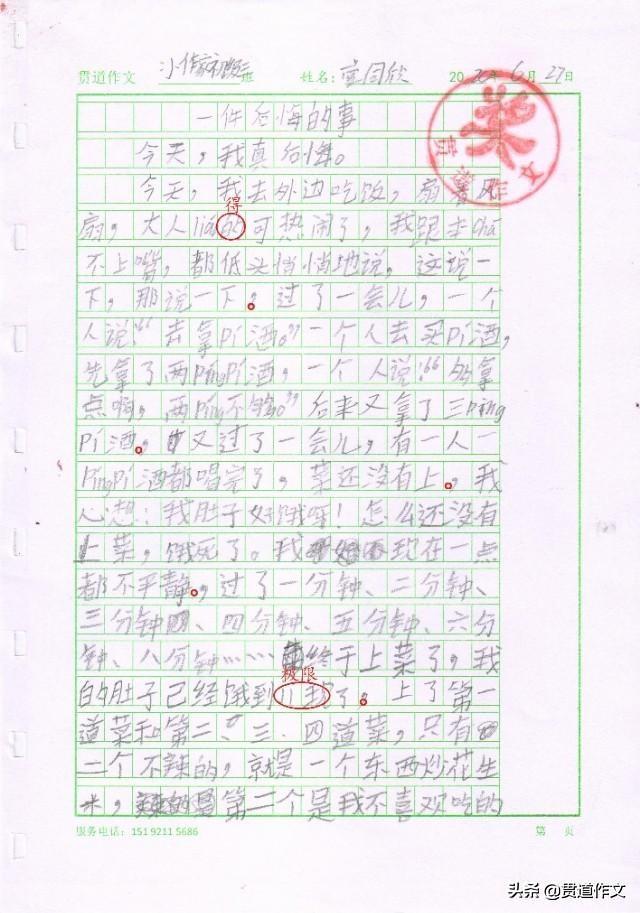 贯道作文 小作家初级班 姓名: 2020年6月27日
一件后悔的事
今天,我真后悔。
今天,我去外边吃饭,扇着风
得
扇,大人liáo的可热闹了,我跟本chā
不上嘴,都低头悄悄地说,这说一
下,那说一下。过了一会儿,一个
人说:“去拿Pí酒。”一个人去买Pí酒,
先拿了两PíngPí酒,一个人说:“多拿
点啊,两Píng不够。”后来又拿了三Píng
Pí酒。又过了一会儿,有一人一
PíngPí酒都唱完了,菜还没有上。我
心想:我肚子好饿呀!怎么还没有
上菜,饿死了。我现在一点
都不平静。过了一分钟、二分钟、
三分钟、四分钟、五分钟、六分
钟、八分钟……终于上菜了,我
极限
的肚子已经饿到了。上了第一
道菜和第二、三、四道菜,只有
二个不辣的,就是一个东西炒花生
米,第二个是我不喜欢吃的
服务电话:151 9211 5686 第 页
贯道作文
头条 @贯道作文